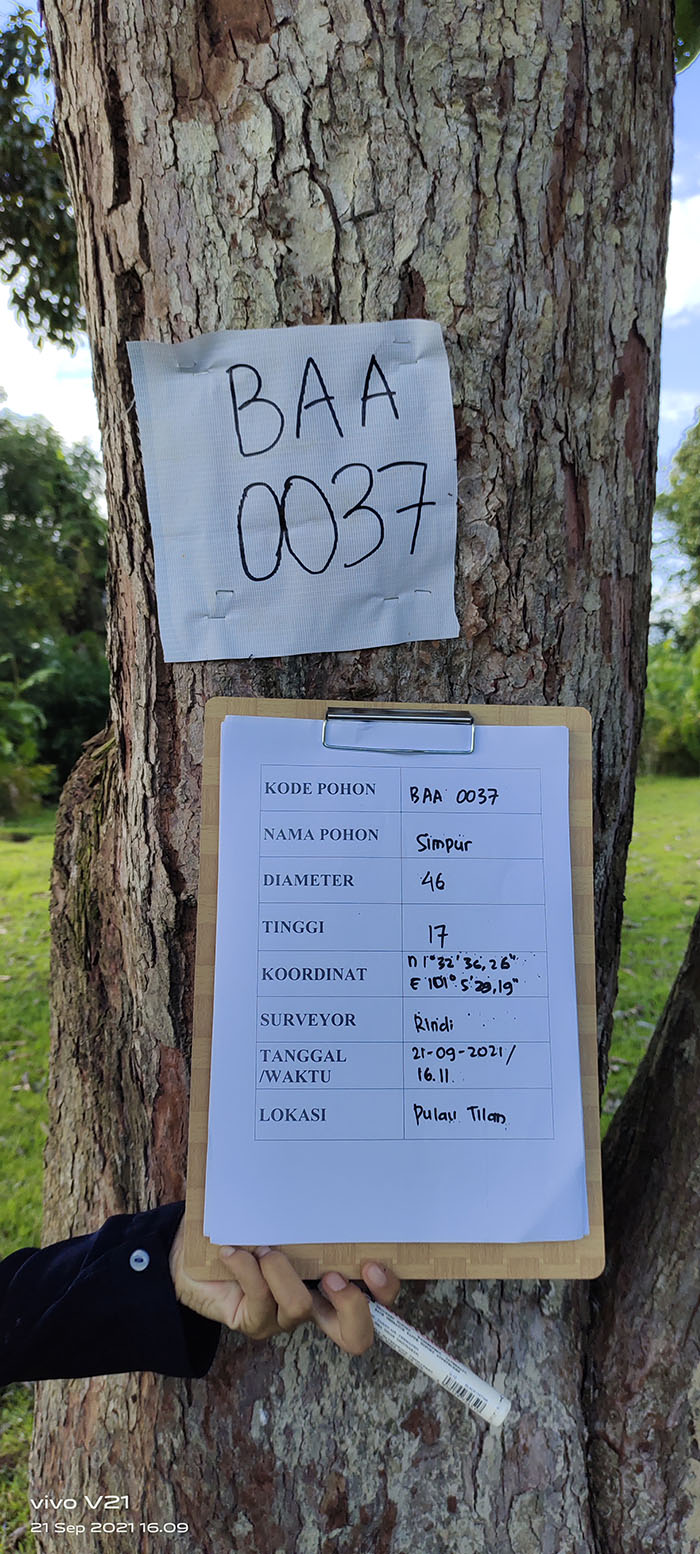 BAA
0037
KODE POHON BAA 0037
NAMA POHON Simpur
DIAMETER 46
TINGGI 17
KOORDINAT n 1° 32' 36,26"
E 101° 5' 29,19"
SURVEYOR Rindi
TANGGAL 21-09-2021/
/WAKTU 16.11
LOKASI Pulau Tilan
vivo V21
21 Sep 2021 16.09